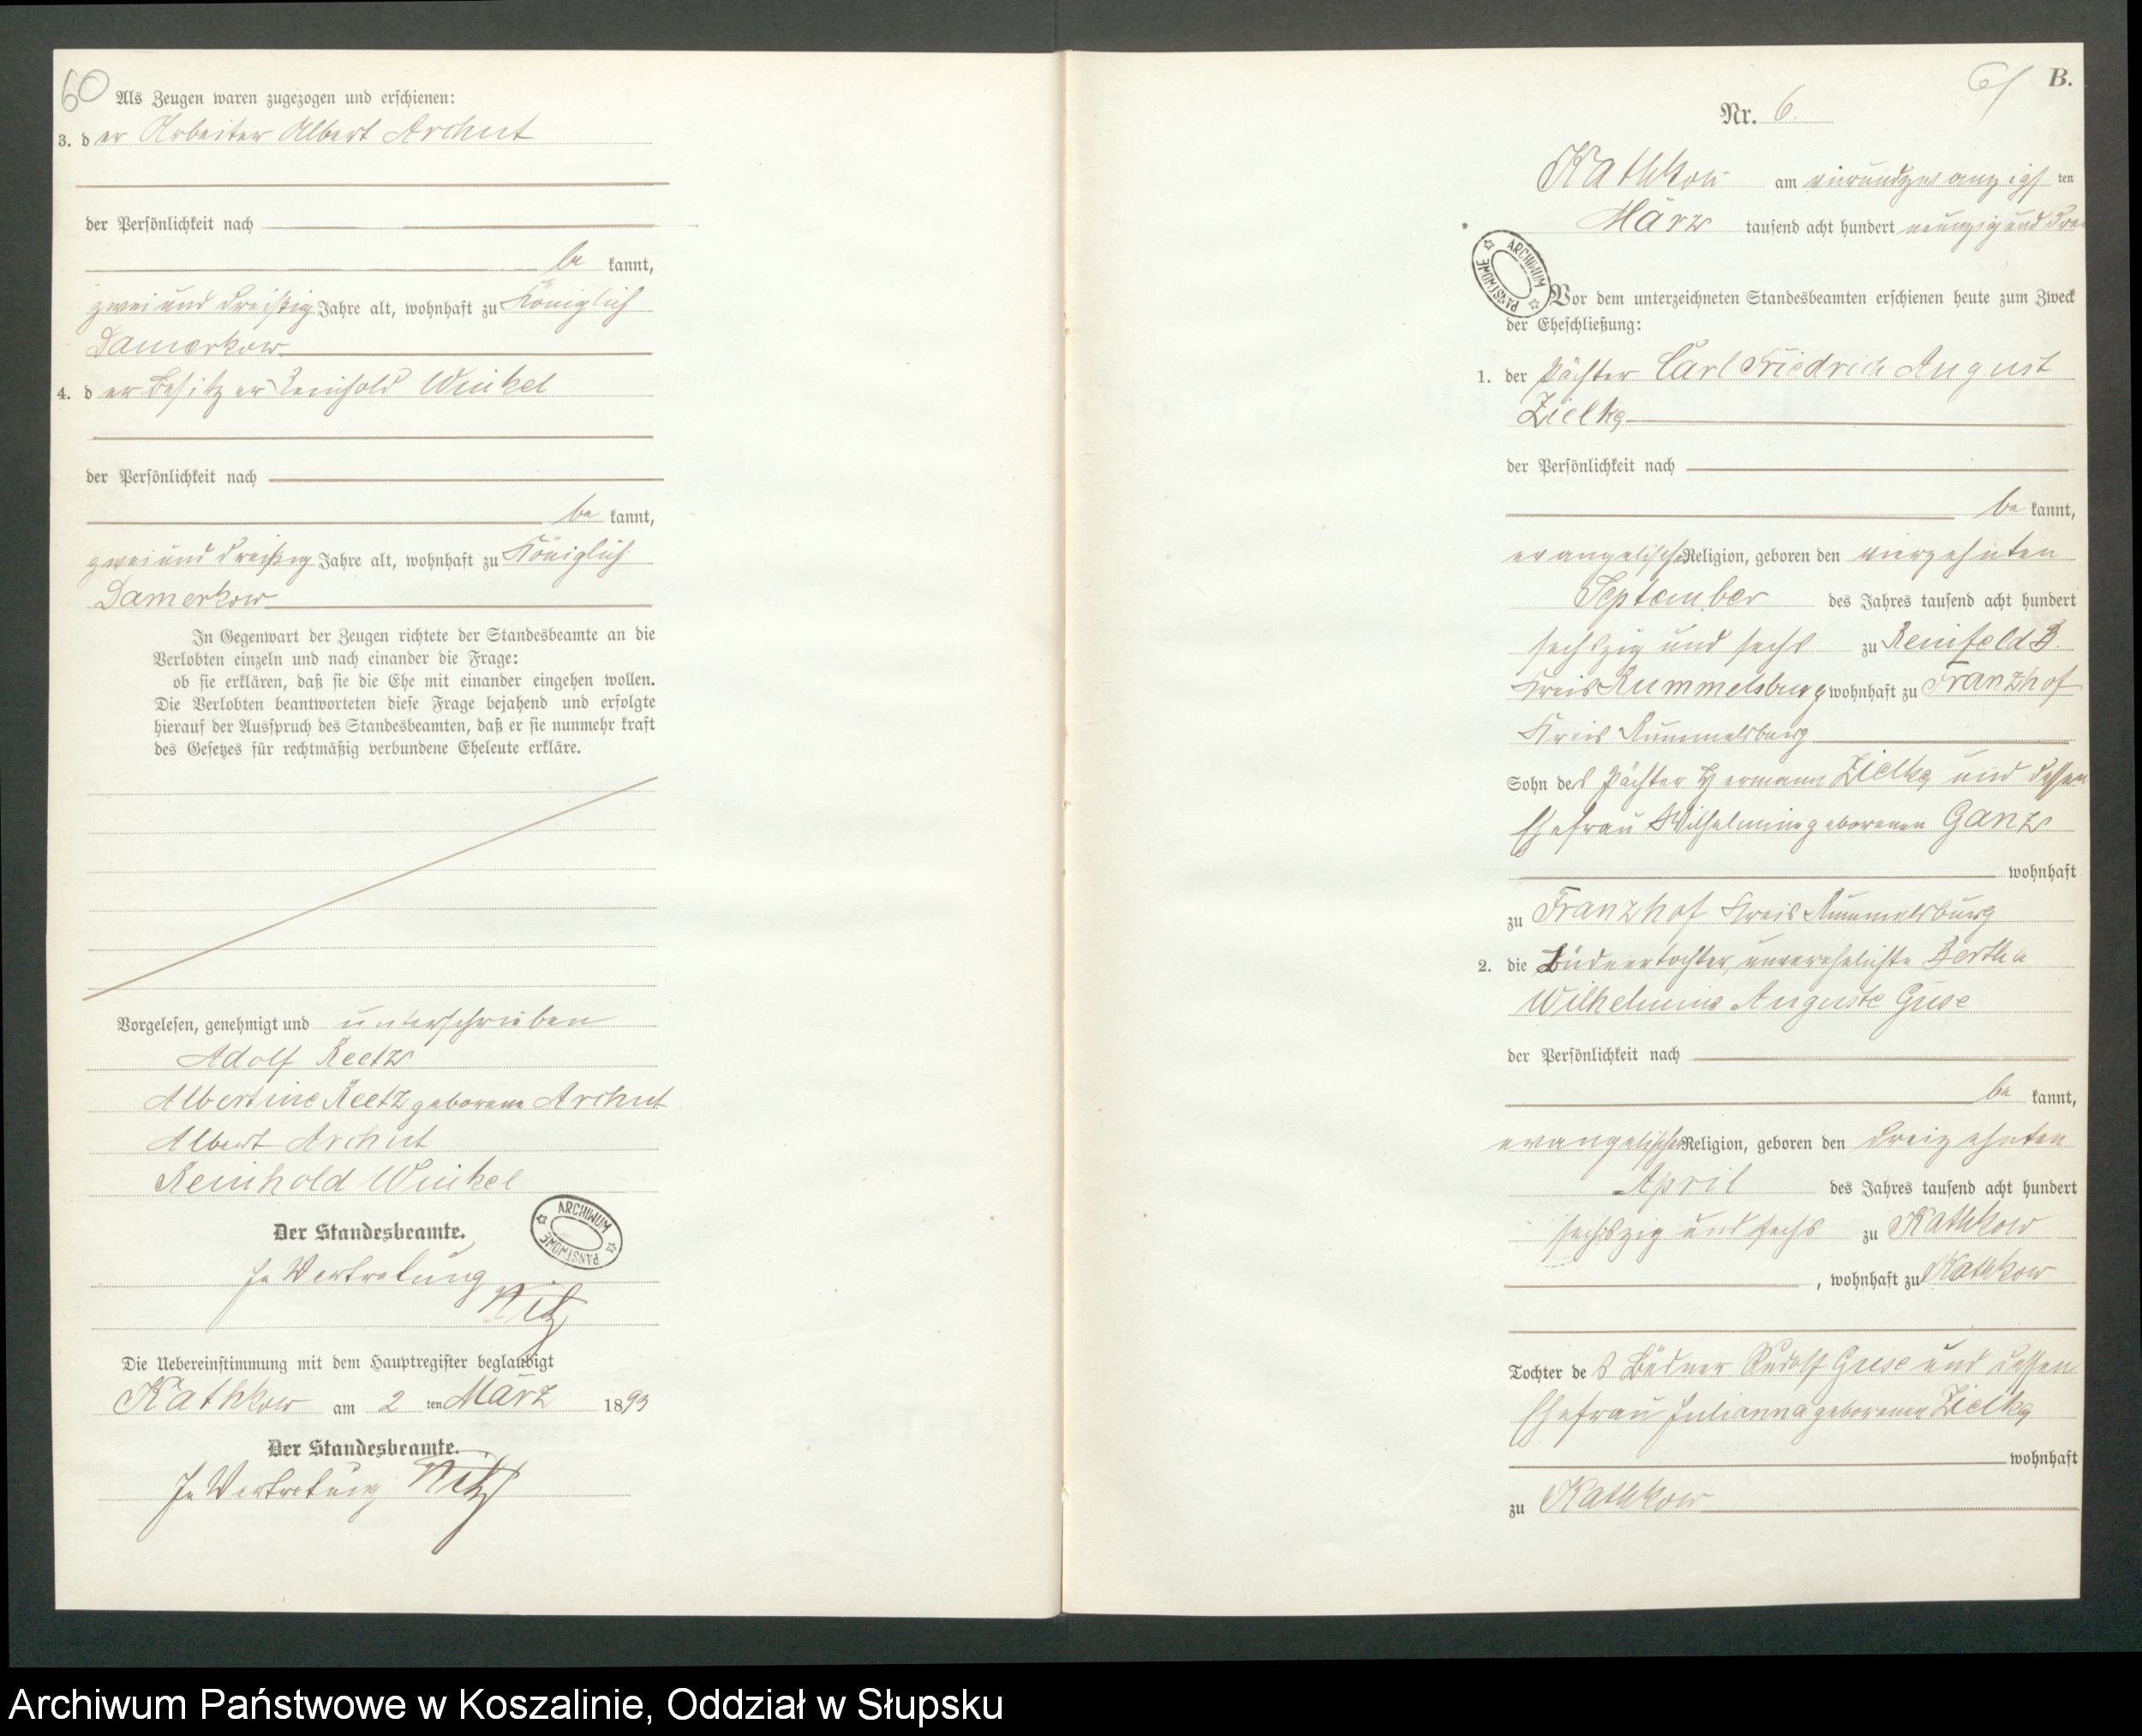 60
Als Zeugen waren zugezogen und erschienen:
3. der Arbeiter Albert Archut
der Persönlichkeit nach
be kannt,
zwei und dreißig Jahre alt, wohnhaft zu Königlich
Damerkow
4. der Besitzer Reinhold Winkel
der Persönlichkeit nach
be kannt,
zwei und dreißig Jahre alt, wohnhaft zu Königlich
Damerkow
In Gegenwart der Zeugen richtete der Standesbeamte an die
Verlobten einzeln und nach einander die Frage:
ob sie erklären, daß sie die Ehe mit einander eingehen wollen.
Die Verlobten beantworteten diese Frage bejahend und erfolgte
hierauf der Ausspruch des Standesbeamten, daß er sie nunmehr kraft
des Gesetzes für rechtmäßig verbundene Eheleute erkläre.
Vorgelesen, genehmigt und unterschrieben
Adolf Reetz
Albertine Reetz geborene Archut
Albert Archut
Reinhold Winkel
Der Standesbeamte.
In Vertretung
Nitz
ARCHIWUM PAŃSTWOWE
Die Uebereinstimmung mit dem Hauptregister beglaubigt
Kathkow am 2 ten März 1893
Der Standesbeamte.
In Vertretung Nitz
61
B.
Nr. 6.
Kathkow am vierundzwanzigsten
März tausend acht hundert neunzig und drei
ARCHIWUM PAŃSTWOWE
Vor dem unterzeichneten Standesbeamten erschienen heute zum Zweck
der Eheschließung:
1. der Pächter Carl Friedrich August
Zielke
der Persönlichkeit nach
be kannt,
evangelischer Religion, geboren den vierzehnten
September des Jahres tausend acht hundert
sechszig und sechs zu Reinfeld B.
Kreis Rummelsburg, wohnhaft zu Franzhof
Kreis Rummelsburg
Sohn des Pächter Hermann Zielke und dessen
Ehefrau Wilhelmine geborenen Ganz
wohnhaft
zu Franzhof Kreis Rummelsburg
2. die Büdnertochter, unverehelichte Bertha
Wilhelmine Auguste Guse
der Persönlichkeit nach
be kannt,
evangelischer Religion, geboren den dreizehnten
April des Jahres tausend acht hundert
sechszig und sechs zu Kathkow
, wohnhaft zu Kathkow
Tochter des Büdner Rudolf Guse und dessen
Ehefrau Julianna geborenen Zielke
wohnhaft
zu Kathkow
Archiwum Państwowe w Koszalinie, Oddział w Słupsku